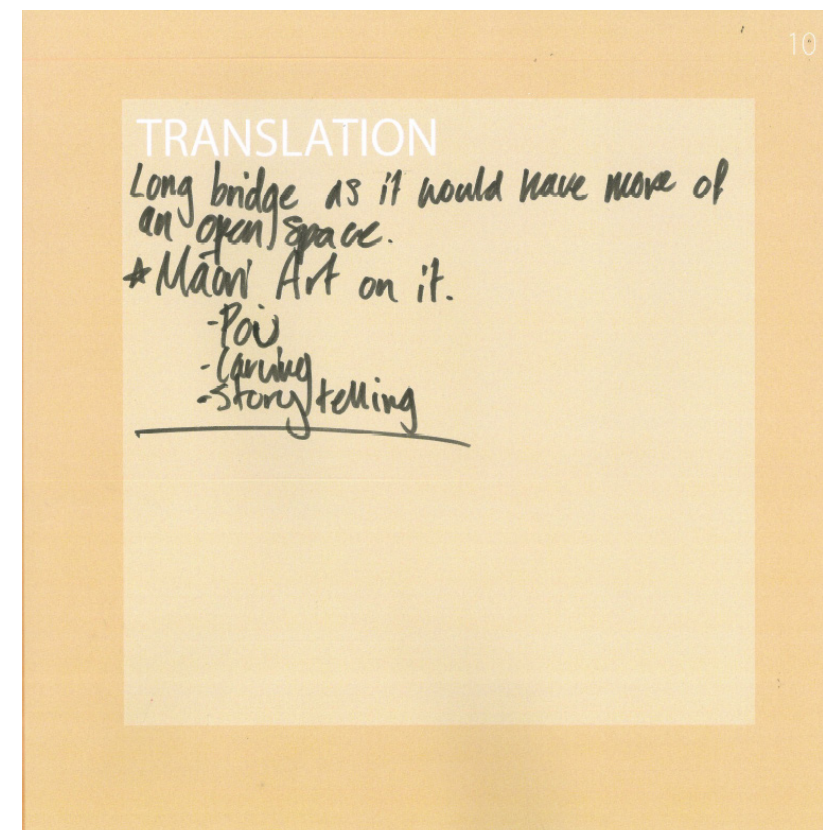 10
TRANSLATION
Long bridge as it would have more of
an open space.
* Māori Art on it.
- Poū
- Carving
- Story telling